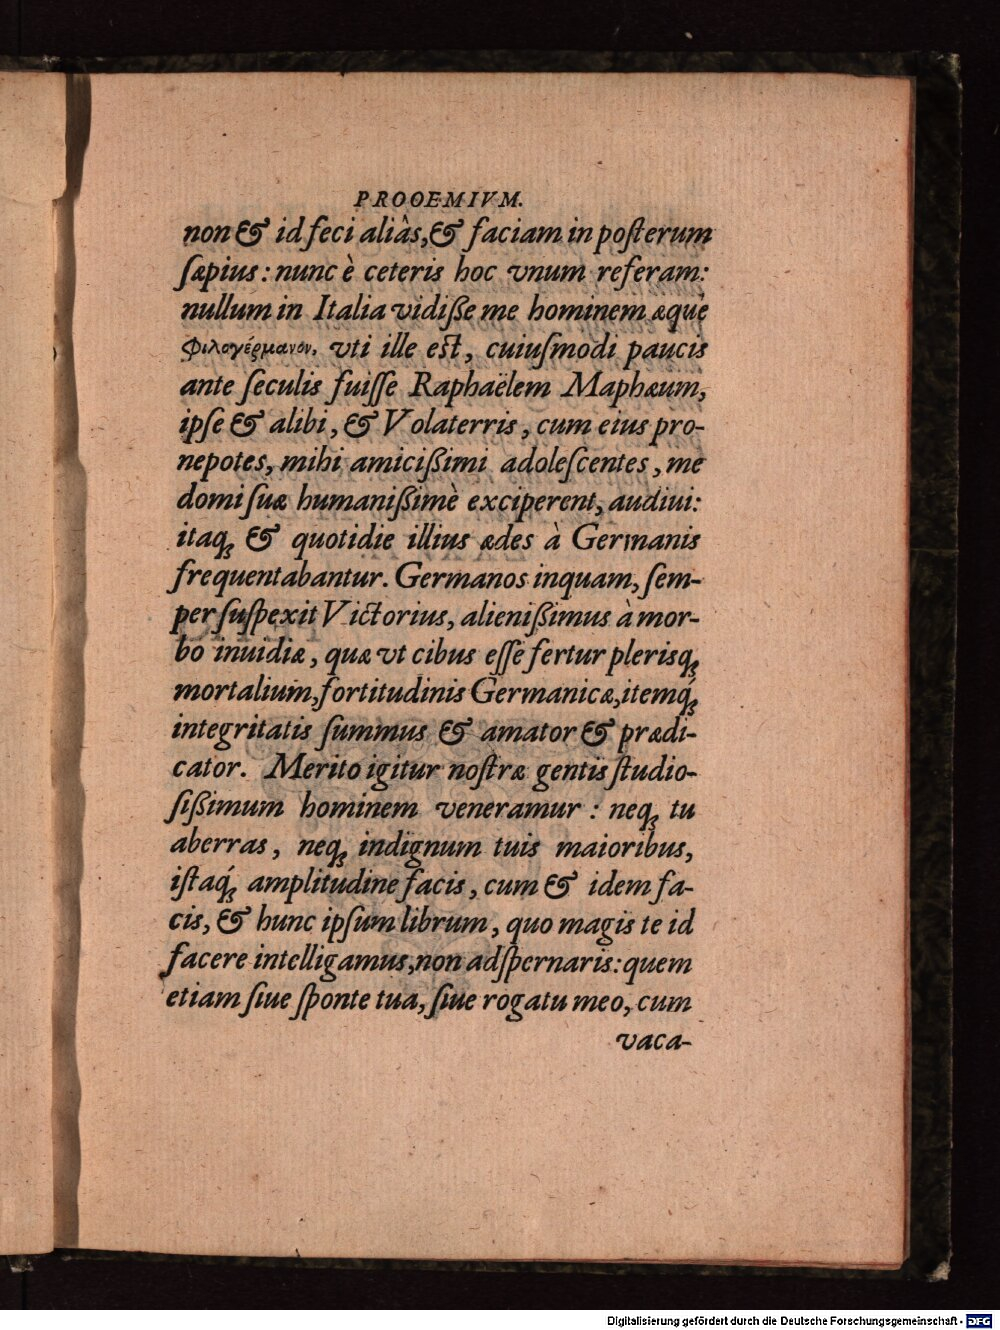 PROOEMIVM.
non & id feci aliâs, & faciam in posterum
sæpius: nunc è ceteris hoc vnum referam:
nullum in Italia vidiße me hominem æquè
φιλογέρμανον, vti ille est, cuiusmodi paucis
ante seculis fuisse Raphaëlem Maphæum,
ipse & alibi, & Volaterris, cum eius pro-
nepotes, mihi amicißimi adolescentes, me
domi suæ humanißimè exciperent, audiui:
itaq; & quotidie illius ædes à Germanis
frequentabantur. Germanos inquam, sem-
per suspexit Victorius, alienißimus à mor-
bo inuidiæ, quæ vt cibus esse fertur plerisq;
mortalium, fortitudinis Germanicæ, itemq́;
integritatis summus & amator & prædi-
cator. Merito igitur nostræ gentis studio-
sißimum hominem veneramur: neq; tu
aberras, neq; indignum tuis maioribus,
istaq́; amplitudine facis, cum & idem fa-
cis, & hunc ipsum librum, quo magis te id
facere intelligamus, non adspernaris: quem
etiam siue sponte tua, siue rogatu meo, cum
vaca-
Digitalisierung gefördert durch die Deutsche Forschungsgemeinschaft - DFG